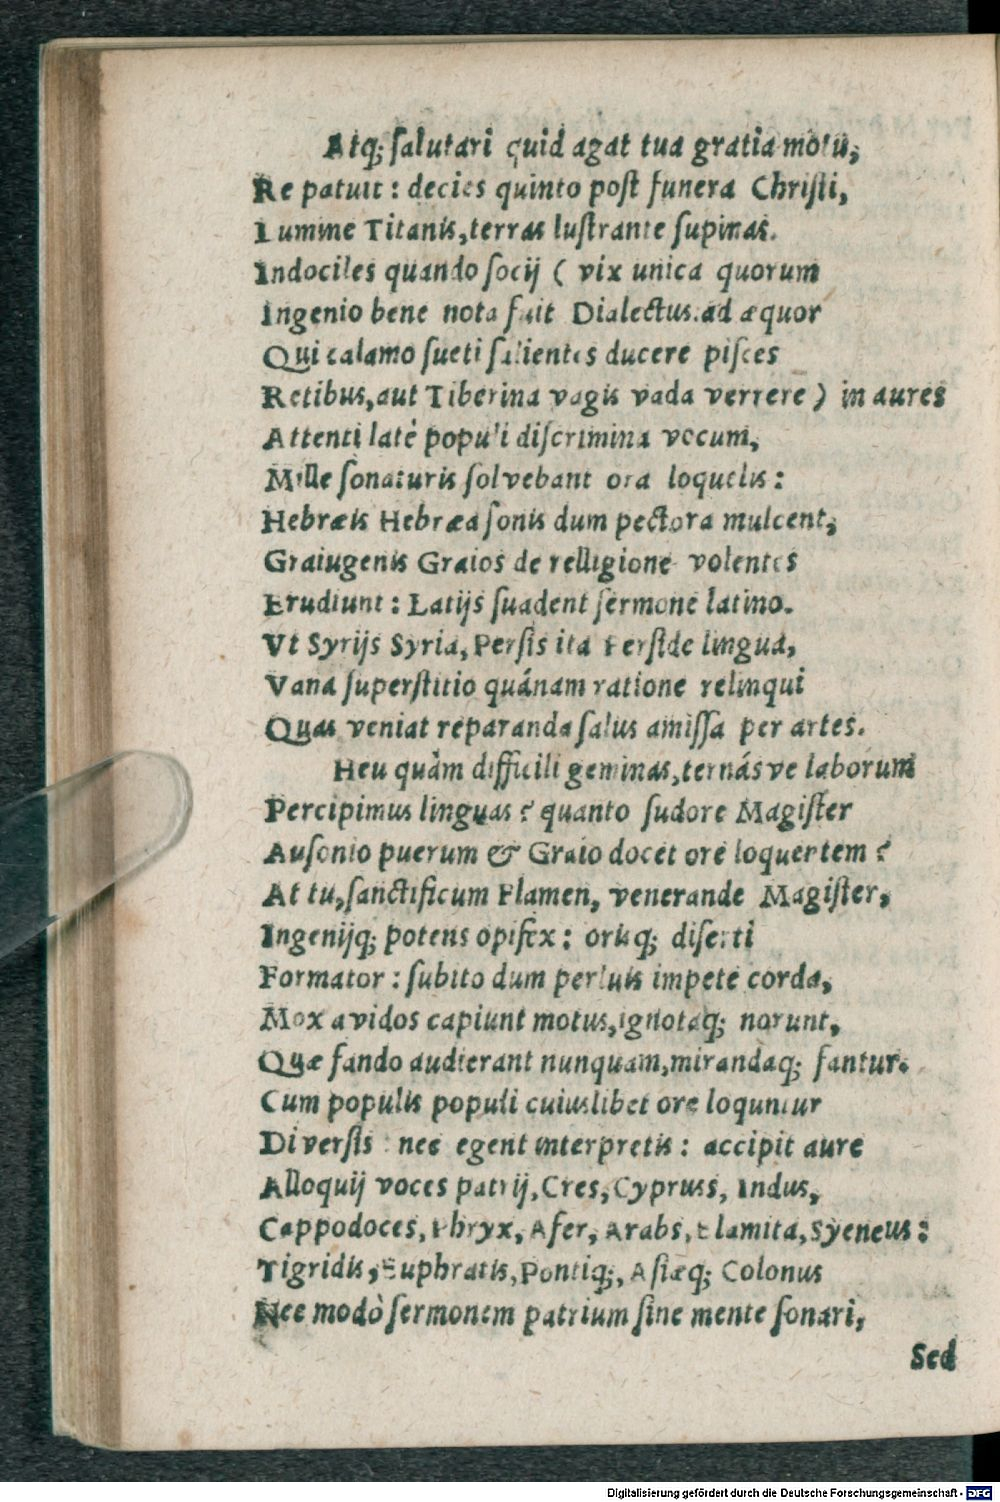 Atq; salutari quid agat tua gratia motu,
Re patuit : decies quinto post funera Christi,
Lumine Titanis, terras lustrante supinas.
Indociles quando socij ( vix unica quorum
Ingenio bene nota fuit Dialectus. ad æquor
Qui calamo sueti salientes ducere pisces
Retibus, aut Tiberina vagis vada verrere ) in aures
Attenti latè populi discrimina vocum,
Mille sonaturis solvebant ora loquelis :
Hebræis Hebræa sonis dum pectora mulcent,
Graiugenis Graios de relligione volentes
Erudiunt : Latijs suadent sermone latino.
Vt Syrijs Syria, Persis ita Perside lingua,
Vana superstitio quánam ratione relinqui
Quas veniat reparanda salus amissa per artes.
Heu quàm difficili geminas, ternásve laborum
Percipimus linguas ? quanto sudore Magister
Ausonio puerum & Graio docet ore loquentem ?
At tu, sanctificum Flamen, venerande Magister,
Ingenijq; potens opifex : orisq; diserti
Formator : subito dum perluis impete corda,
Mox avidos capiunt motus, ignotaq; norunt,
Quæ fando audierant nunquam, mirandaq; fantur.
Cum populis populi cuiuslibet ore loquntur
Diversis : nec egent interpretis : accipit aure
Alloquij voces patrij, Cres, Cyprus, Indus,
Cappodoces, Phryx, Afer, Arabs, Elamita, Syeneus :
Tigridis, Euphratis, Pontiq;, Asiæq; Colonus
Nec modò sermonem patrium sine mente sonari,
Sed
Digitalisierung gefördert durch die Deutsche Forschungsgemeinschaft - DFG